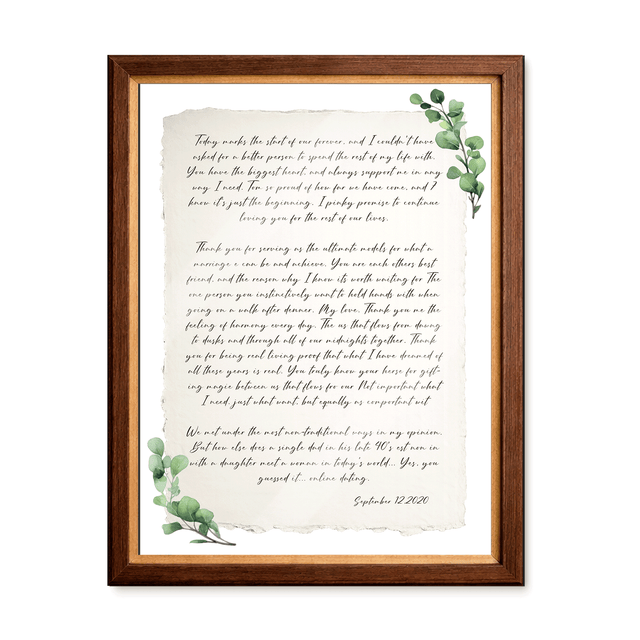 Today marks the start of our forever, and I couldn't have
asked for a better person to spend the rest of my life with.
You have the biggest heart, and always support me in any
way I need. I'm so proud of how far we have come, and I
know it's just the beginning. I pinky promise to continue
loving you for the rest of our lives.
Thank you for serving as the ultimate models for what a
marriage e can be and achieve. You are each others best
friend, and the reason why I know its worth waiting for The
one person you instinctively want to hold hands with when
going on a walk after danner. My love, Thank you me the
feeling of harmony every day. The us that flows from dawng
to dusks and through all of our midnights together. Thank
you for being real living proof that what I have dreamed of
all these years is real. You truly know your herse for gift-
ing magie between us that flows for our Not important what
I need, just what want, but equally as comportant wit
We met under the most non-traditional ways in my opinion.
But how else does a single dad in his late 40's est non in
with a daughter meet a woman in today's world... Yes, you
guessed it... online dating.
September 12.2020